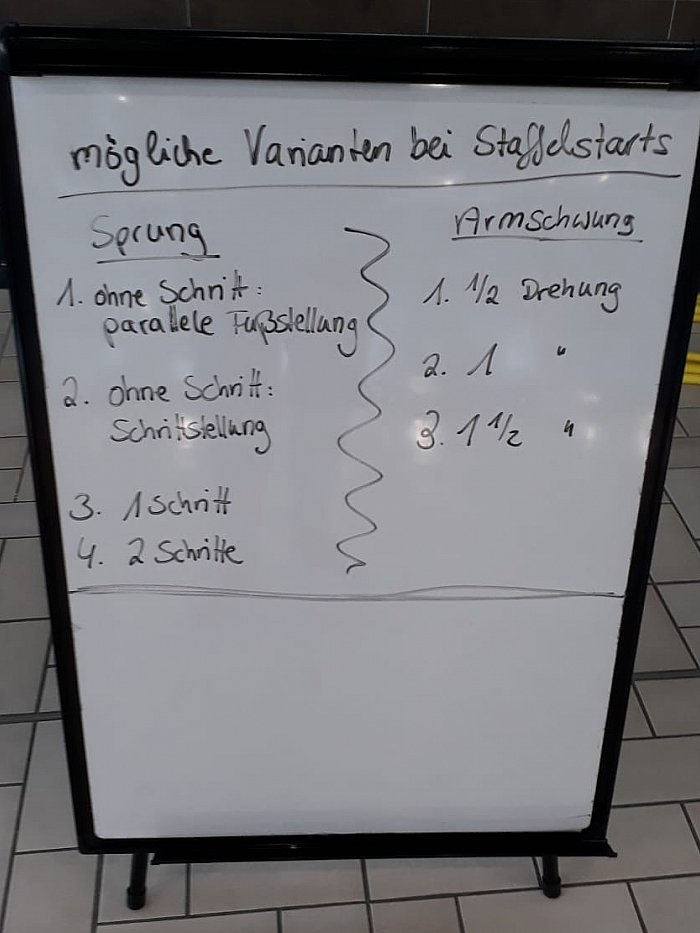 mögliche Varianten bei Staffelstarts
Sprung
1. ohne Schritt:
parallele Fußstellung
2. ohne Schritt:
Schrittstellung
3. 1 Schritt
4. 2 Schritte
Armschwung
1. 1/2 Drehung
2. 1 "
3. 1 1/2 "